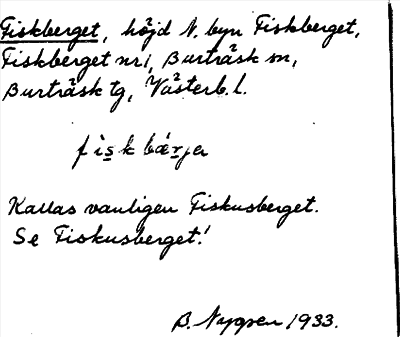 Fiskberget, höjd N. byn Fiskberget,
Fiskberget nr 1, Burträsk sn,
Burträsk tg, Västerb. l.
fìskbǽrjer
Kallas vanligen Fiskusberget.
Se Fiskusberget!
B. Nygren 1933.